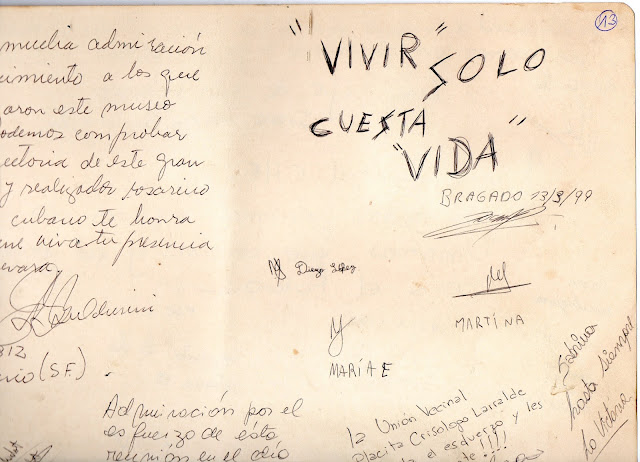 13
mucha admiración
cimiento a los que
aron este museo
odemos comprobar
ectoria de este gran
y realizador rosarino
cubano te honra
viva tu presencia
evara.
812
(S.F.)
"VIVIR" SOLO
CUESTA
"VIDA"
BRAGADO 13/3/99
Diego López
MARTINA
MARÍA E
Admiración por el
esfuerzo de esta
reunión en el
la Unión Vecinal
Placita Crisologo Larralde
el esfuerzo y les
!!!!
Sabrina
hasta siempre
La Victoria